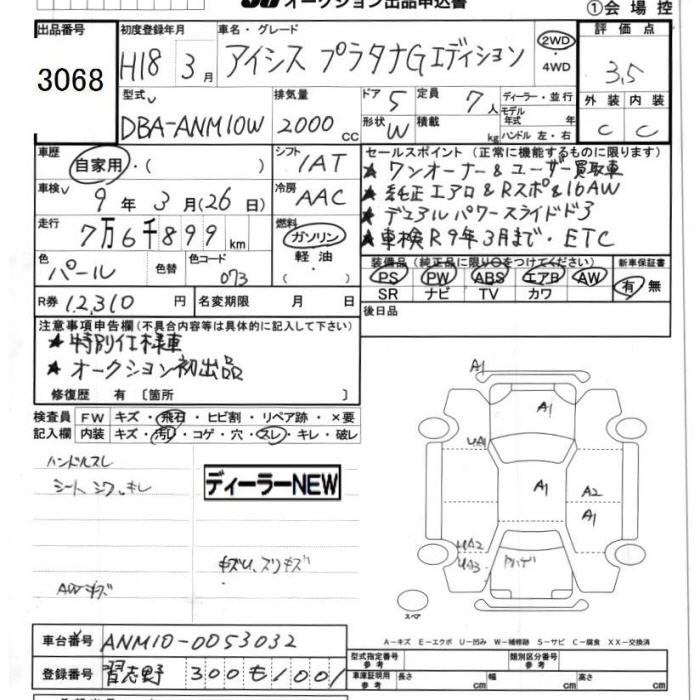 オークション出品申込書
①会場控
出品番号
3068
初度登録年月
H18 3月
車名・グレード
アイシス プラタナGエディション
2WD
・
4WD
評価点
3.5
外装 内装
C C
型式
DBA-ANM10W
排気量
2000cc
ドア 5 定員 7人
形状 W 積載 kg
ディーラー・並行
モデル
年式 年
ハンドル 左・右
車歴
自家用・( )
シフト
IAT
セールスポイント (正常に機能するものに限ります)
★ワンオーナー&ユーザー買取車
★純正エアロ&Rスポ&16AW
★デュアルパワースライドドア
★車検R9年3月まで・ETC
車検
9年 3月(26日)
冷房
AAC
走行
7万6千899km
燃料
ガソリン
軽油
( )
色
パール
色替
色コード
073
装備品(純正品に限り○をつけてください)
PS PW ABS エアB AW
SR ナビ TV カワ
新車保証書
有 無
R券 12,310円
名変期限 月 日
後日品
注意事項申告欄(不具合内容等は具体的に記入して下さい)
★特別仕様車
★オークション初出品
修復歴 有 〔箇所 〕
検査員 FW キズ・飛石・ヒビ割・リペア跡・×要
記入欄 内装 キズ・汚レ・コゲ・穴・スレ・キレ・破レ
ハンドルスレ
シート シワ,キレ
ディーラーNEW
キズU,スリキズ
AWキズ
A1
A1
UA1
A1
A2
A1
UA2
UA3
スペア
A-キズ E-エクボ U-凹み W-補修跡 S-サビ C-腐食 XX-交換済
車台番号 ANM10-0053032
登録番号 習志野 300も1001
型式指定番号
参考
類別区分番号
参考
車庫証明用
参考
長さ cm 幅 cm 高さ cm